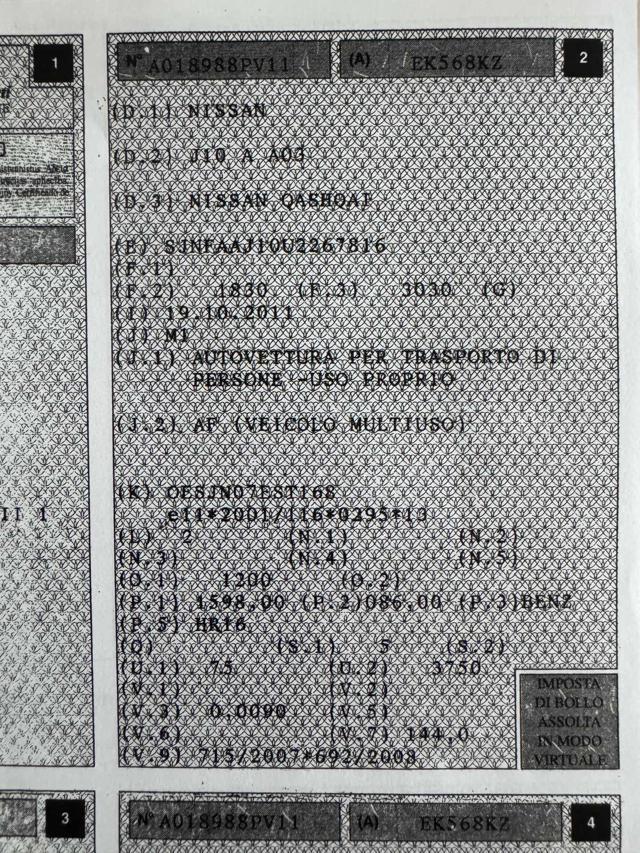 1
N° A018988PV11 (A) EK568KZ 2
(D.1) NISSAN
(D.2) J10 A A03
(D.3) NISSAN QASHQAI
(E) SJNFAAJ10U2267816
(F.1)
(F.2) 1830 (F.3) 3030 (G)
(I) 19.10.2011
(J) M1
(J.1) AUTOVETTURA PER TRASPORTO DI
PERSONE -USO PROPRIO
(J.2) AF (VEICOLO MULTIUSO)
(K) OESJN07EST168
e11*2001/116*0295*13
II 1
(L) 2 (N.1) (N.2)
(N.3) (N.4) (N.5)
(O.1) 1200 (O.2)
(P.1) 1598,00 (P.2)086,00 (P.3)BENZ
(P.5) HR16
(Q) (S.1) 5 (S.2)
(U.1) 75 (U.2) 3750
(V.1) (V.2)
(V.3) 0,0090 (V.5)
(V.6) (V.7) 144,0
(V.9) 715/2007*692/2008
IMPOSTA
DI BOLLO
ASSOLTA
IN MODO
VIRTUALE
3
N° A018988PV11 (A) EK568KZ 4